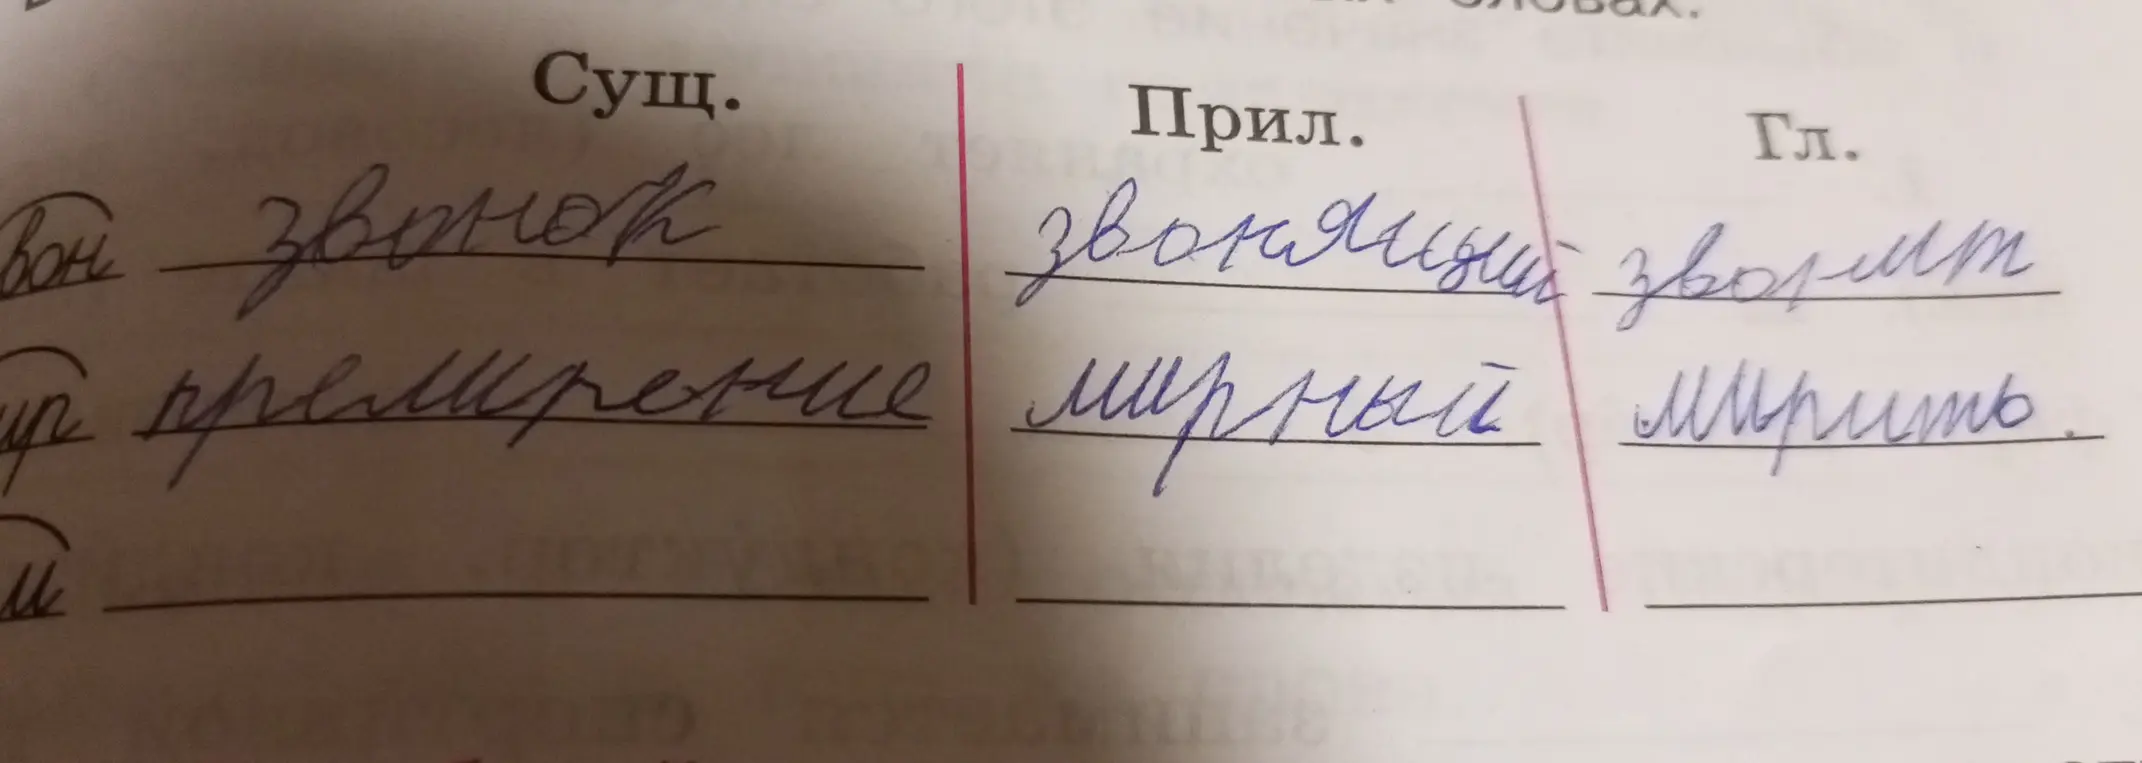 словах.
Сущ. Прил. Гл.
вон звонок звонящий звонит
ир премирение мирный мирить.
м